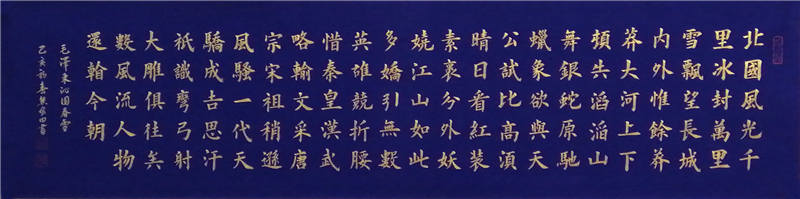 北國風光千
里冰封萬里
雪飄望長城
內外惟餘莽
莽大河上下
頓失滔滔山
舞銀蛇原馳
蠟象欲與天
公試比高須
晴日看紅裝
素裹分外妖
嬈江山如此
多嬌引無數
英雄競折腰
惜秦皇漢武
略輸文采唐
宗宋祖稍遜
風騷一代天
驕成吉思汗
祇識彎弓射
大雕俱往矣
數風流人物
還翰今朝
毛澤東沁園春雪
己亥初春書